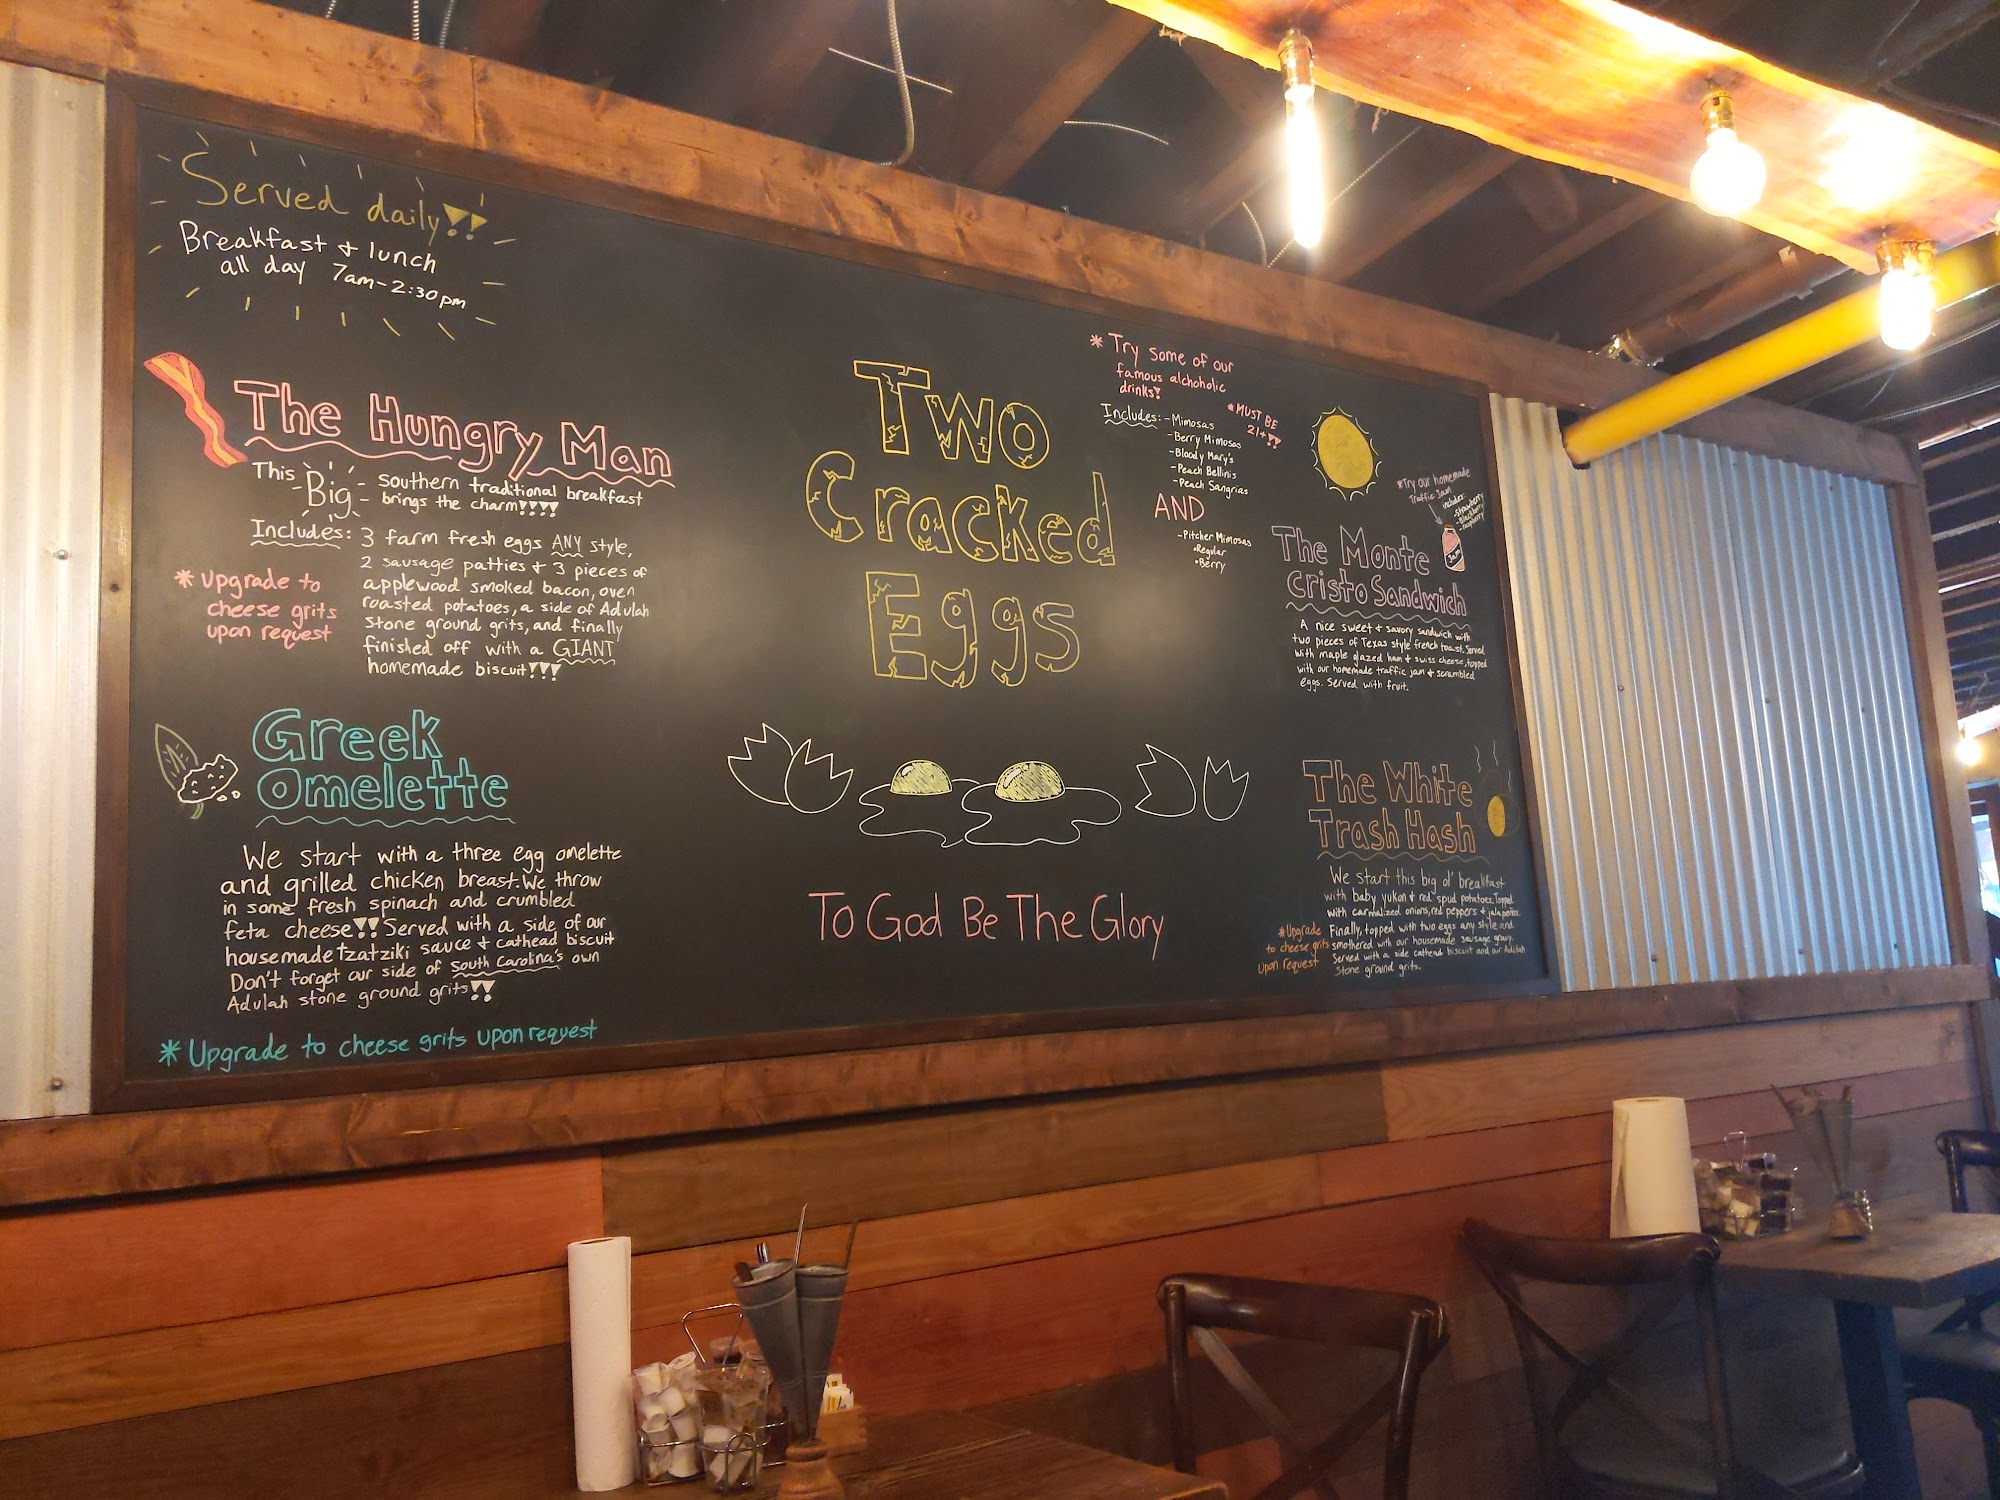 Served daily!!
Breakfast & lunch
all day 7am-2:30pm
The Hungry Man
This Big southern traditional breakfast
brings the charm!!!!
Includes: 3 farm fresh eggs ANY style,
2 sausage patties & 3 pieces of
applewood smoked bacon, oven
roasted potatoes, a side of Adulah
stone ground grits, and finally
finished off with a GIANT
homemade biscuit!!!
* upgrade to
cheese grits
upon request
Greek
Omelette
We start with a three egg omelette
and grilled chicken breast. We throw
in some fresh spinach and crumbled
feta cheese!! Served with a side of our
housemade tzatziki sauce & cathead biscuit
Don't forget our side of South Carolina's own
Adulah stone ground grits!!
* Upgrade to cheese grits upon request
Two
Cracked
Eggs
To God Be The Glory
* Try some of our
famous alchoholic
drinks!
* MUST BE
21+!!
Includes: - Mimosas
- Berry Mimosas
- Bloody Mary's
- Peach Bellinis
- Peach Sangrias
AND
- Pitcher Mimosas
• Regular
• Berry
* Try our homemade
Traffic Jam
includes:
- strawberry
- blackberry
- raspberry
Jam
The Monte
cristo Sandwich
A nice sweet & savory sandwich with
two pieces of Texas style french toast. Served
with maple glazed ham & swiss cheese, topped
with our homemade traffic jam & scrambled
eggs. Served with fruit.
The White
Trash Hash
We start this big ol' breakfast
with baby yukon & red spud potatoes. Topped
with carmalized onions, red peppers & jalapeños.
Finally, topped with two eggs any style and
smothered with our housemade sausage gravy.
Served with a side cathead biscuit and our Adulah
stone ground grits.
* Upgrade
to cheese grits
upon request